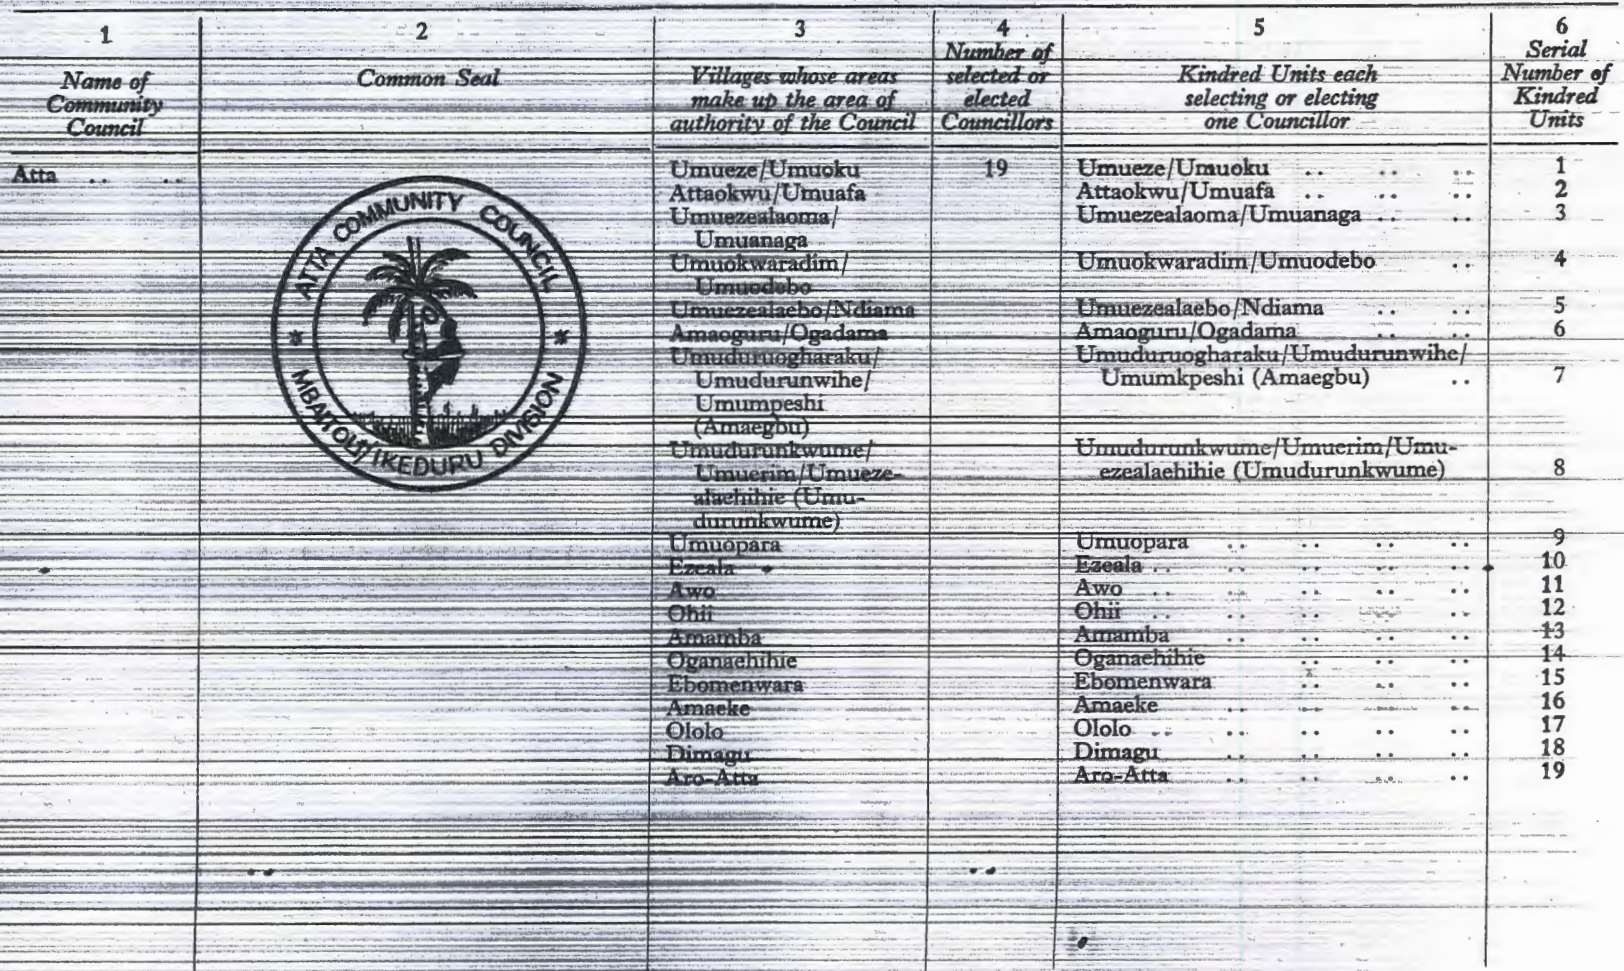 1 2 3 4 5 6
Name of Community Council
Common Seal
Villages whose areas make up the area of authority of the Council
Number of selected or elected Councillors
Kindred Units each selecting or electing one Councillor
Serial Number of Kindred Units
Atta .. ..
ATTA COMMUNITY COUNCIL
* MBAITOLI/IKEDURU DIVISION *
Umueze/Umuoku 19 Umueze/Umuoku .. .. .. 1
Attaokwu/Umuafa Attaokwu/Umuafa .. .. .. 2
Umuezealaoma/ Umuezealaoma/Umuanaga .. .. 3
Umuanaga
Umuokwaradim/ Umuokwaradim/Umuodebo .. 4
Umuodebo
Umuezealaebo/Ndiama Umuezealaebo/Ndiama .. .. 5
Amaoguru/Ogadama Amaoguru/Ogadama .. .. 6
Umuduruogharaku/ Umuduruogharaku/Umudurunwihe/
Umudurunwihe/ Umumkpeshi (Amaegbu) .. 7
Umumpeshi
(Amaegbu)
Umudurunkwume/ Umudurunkwume/Umuerim/Umu-
Umuerim/Umueze- ezealaehihie (Umudurunkwume) 8
alaehihie (Umu-
durunkwume)
Umuopara Umuopara .. .. .. .. 9
Ezeala Ezeala .. .. .. .. .. 10
Awo Awo .. .. .. .. .. 11
Ohii Ohii .. .. .. .. .. 12
Amamba Amamba .. .. .. .. 13
Oganaehihie Oganaehihie .. .. .. 14
Ebomenwara Ebomenwara .. .. .. 15
Amaeke Amaeke .. .. .. .. 16
Ololo Ololo .. .. .. .. .. 17
Dimagu Dimagu .. .. .. .. 18
Aro-Atta Aro-Atta .. .. .. .. 19